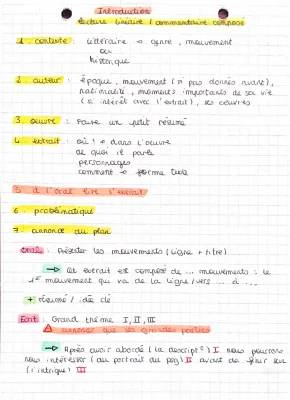 Introduction
lecture linéaire / commentaire composé
1. contexte : littéraire → genre, mouvement
ou
historique
2. auteur : Époque, mouvement (si pas donnés avant),
nationalité, moments importants de sa vie
(si intérêt avec l'extrait), ses œuvres
3. œuvre : Faire un petit résumé
4. extrait : où ? → dans l'œuvre
de quoi il parle
personnages
comment → forme
5. à l'oral lire l'extrait
6. problématique
7. annonce du plan
Oral : Présenter les mouvements (ligne + titre)
→ Cet extrait est composé de ... mouvements : le
1er mouvement qui va de la ligne/vers ... à ...
+ résumé / idée clé
Écrit : Grand thème I, II, III
⚠ annoncer que les grandes parties
→ Après avoir abordé (la descript°) I nous pourrons
nous intéresser (au portrait du perso) II avant de finir sur
(l'intrigue) III